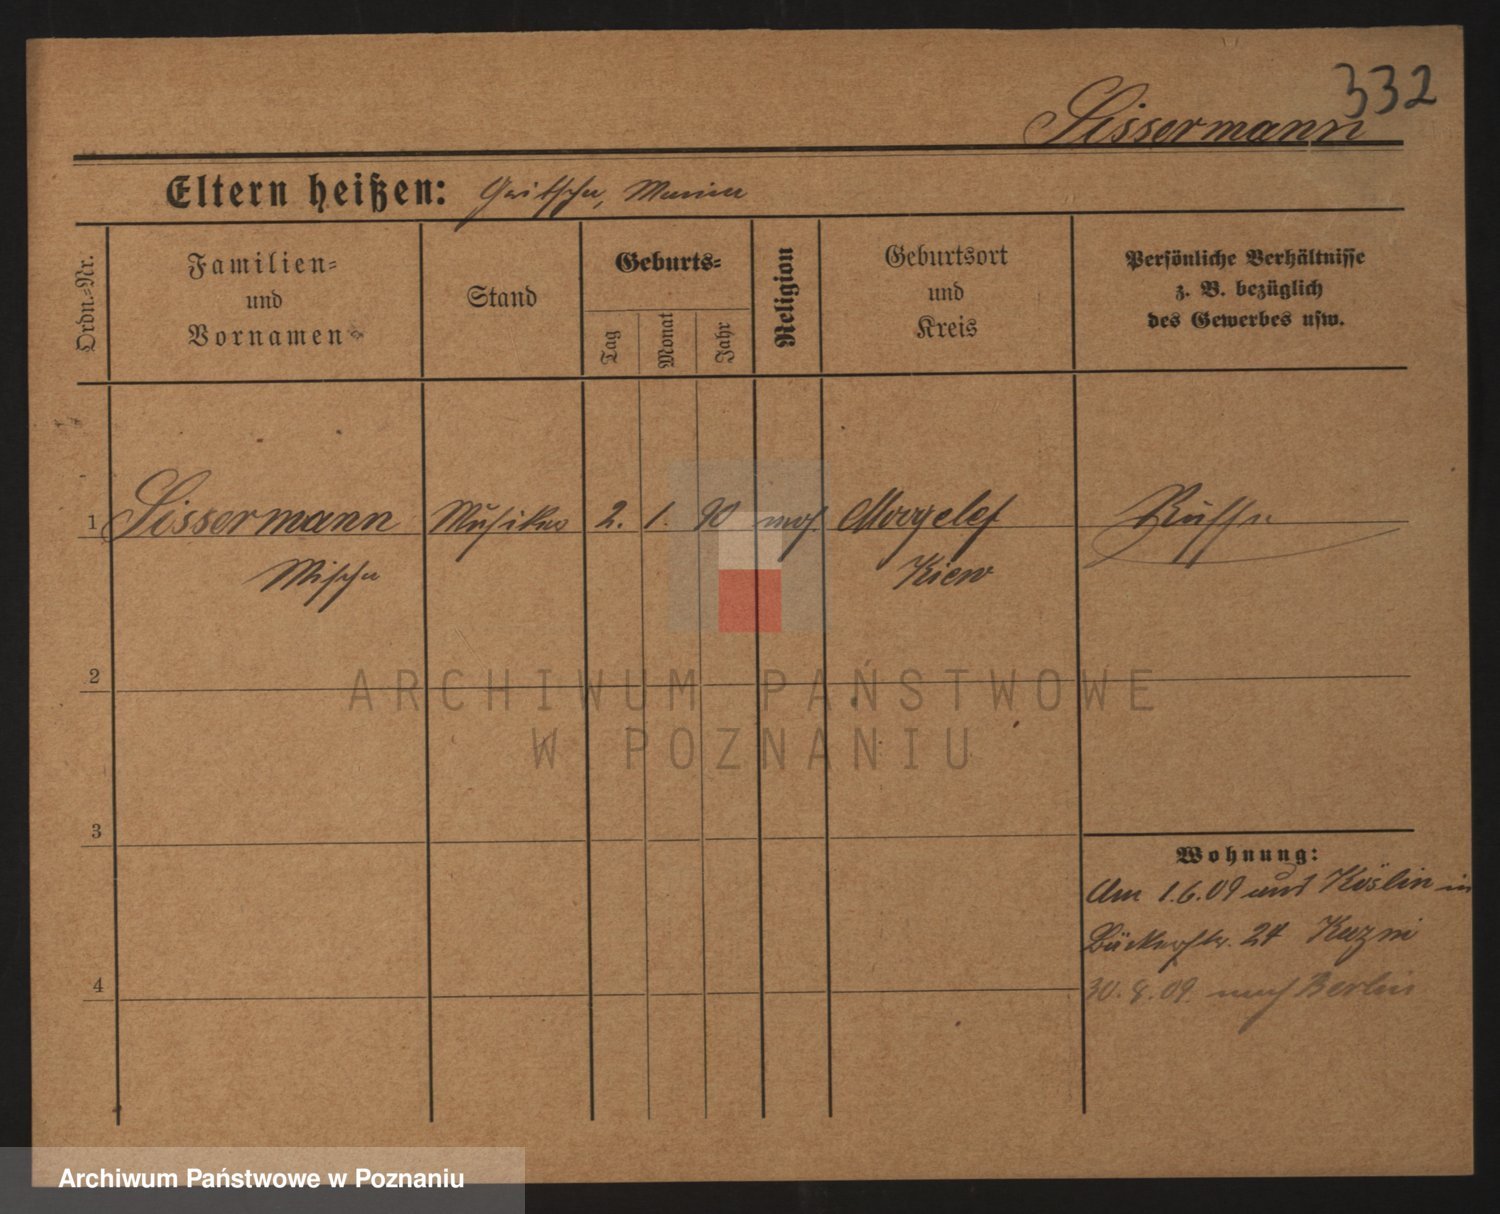 332
Sissermann
Eltern heißen: Gritscha, Marien
Ordn.-Nr.
Familien-
und
Vornamen
Stand
Geburts-
Tag
Monat
Jahr
Religion
Geburtsort
und
Kreis
Persönliche Verhältnisse
z. B. bezüglich
des Gewerbes usw.
1 Sissermann Musiker 2. 1. 90 mos. Russe
Mischa Kiew
2
ARCHIWUM PAŃSTWOWE
W POZNANIU
3
Wohnung:
Am 1.6.09 aus Köslin in
Bäckerstr. 24
4
30. 8. 09. nach Berlin
Archiwum Państwowe w Poznaniu